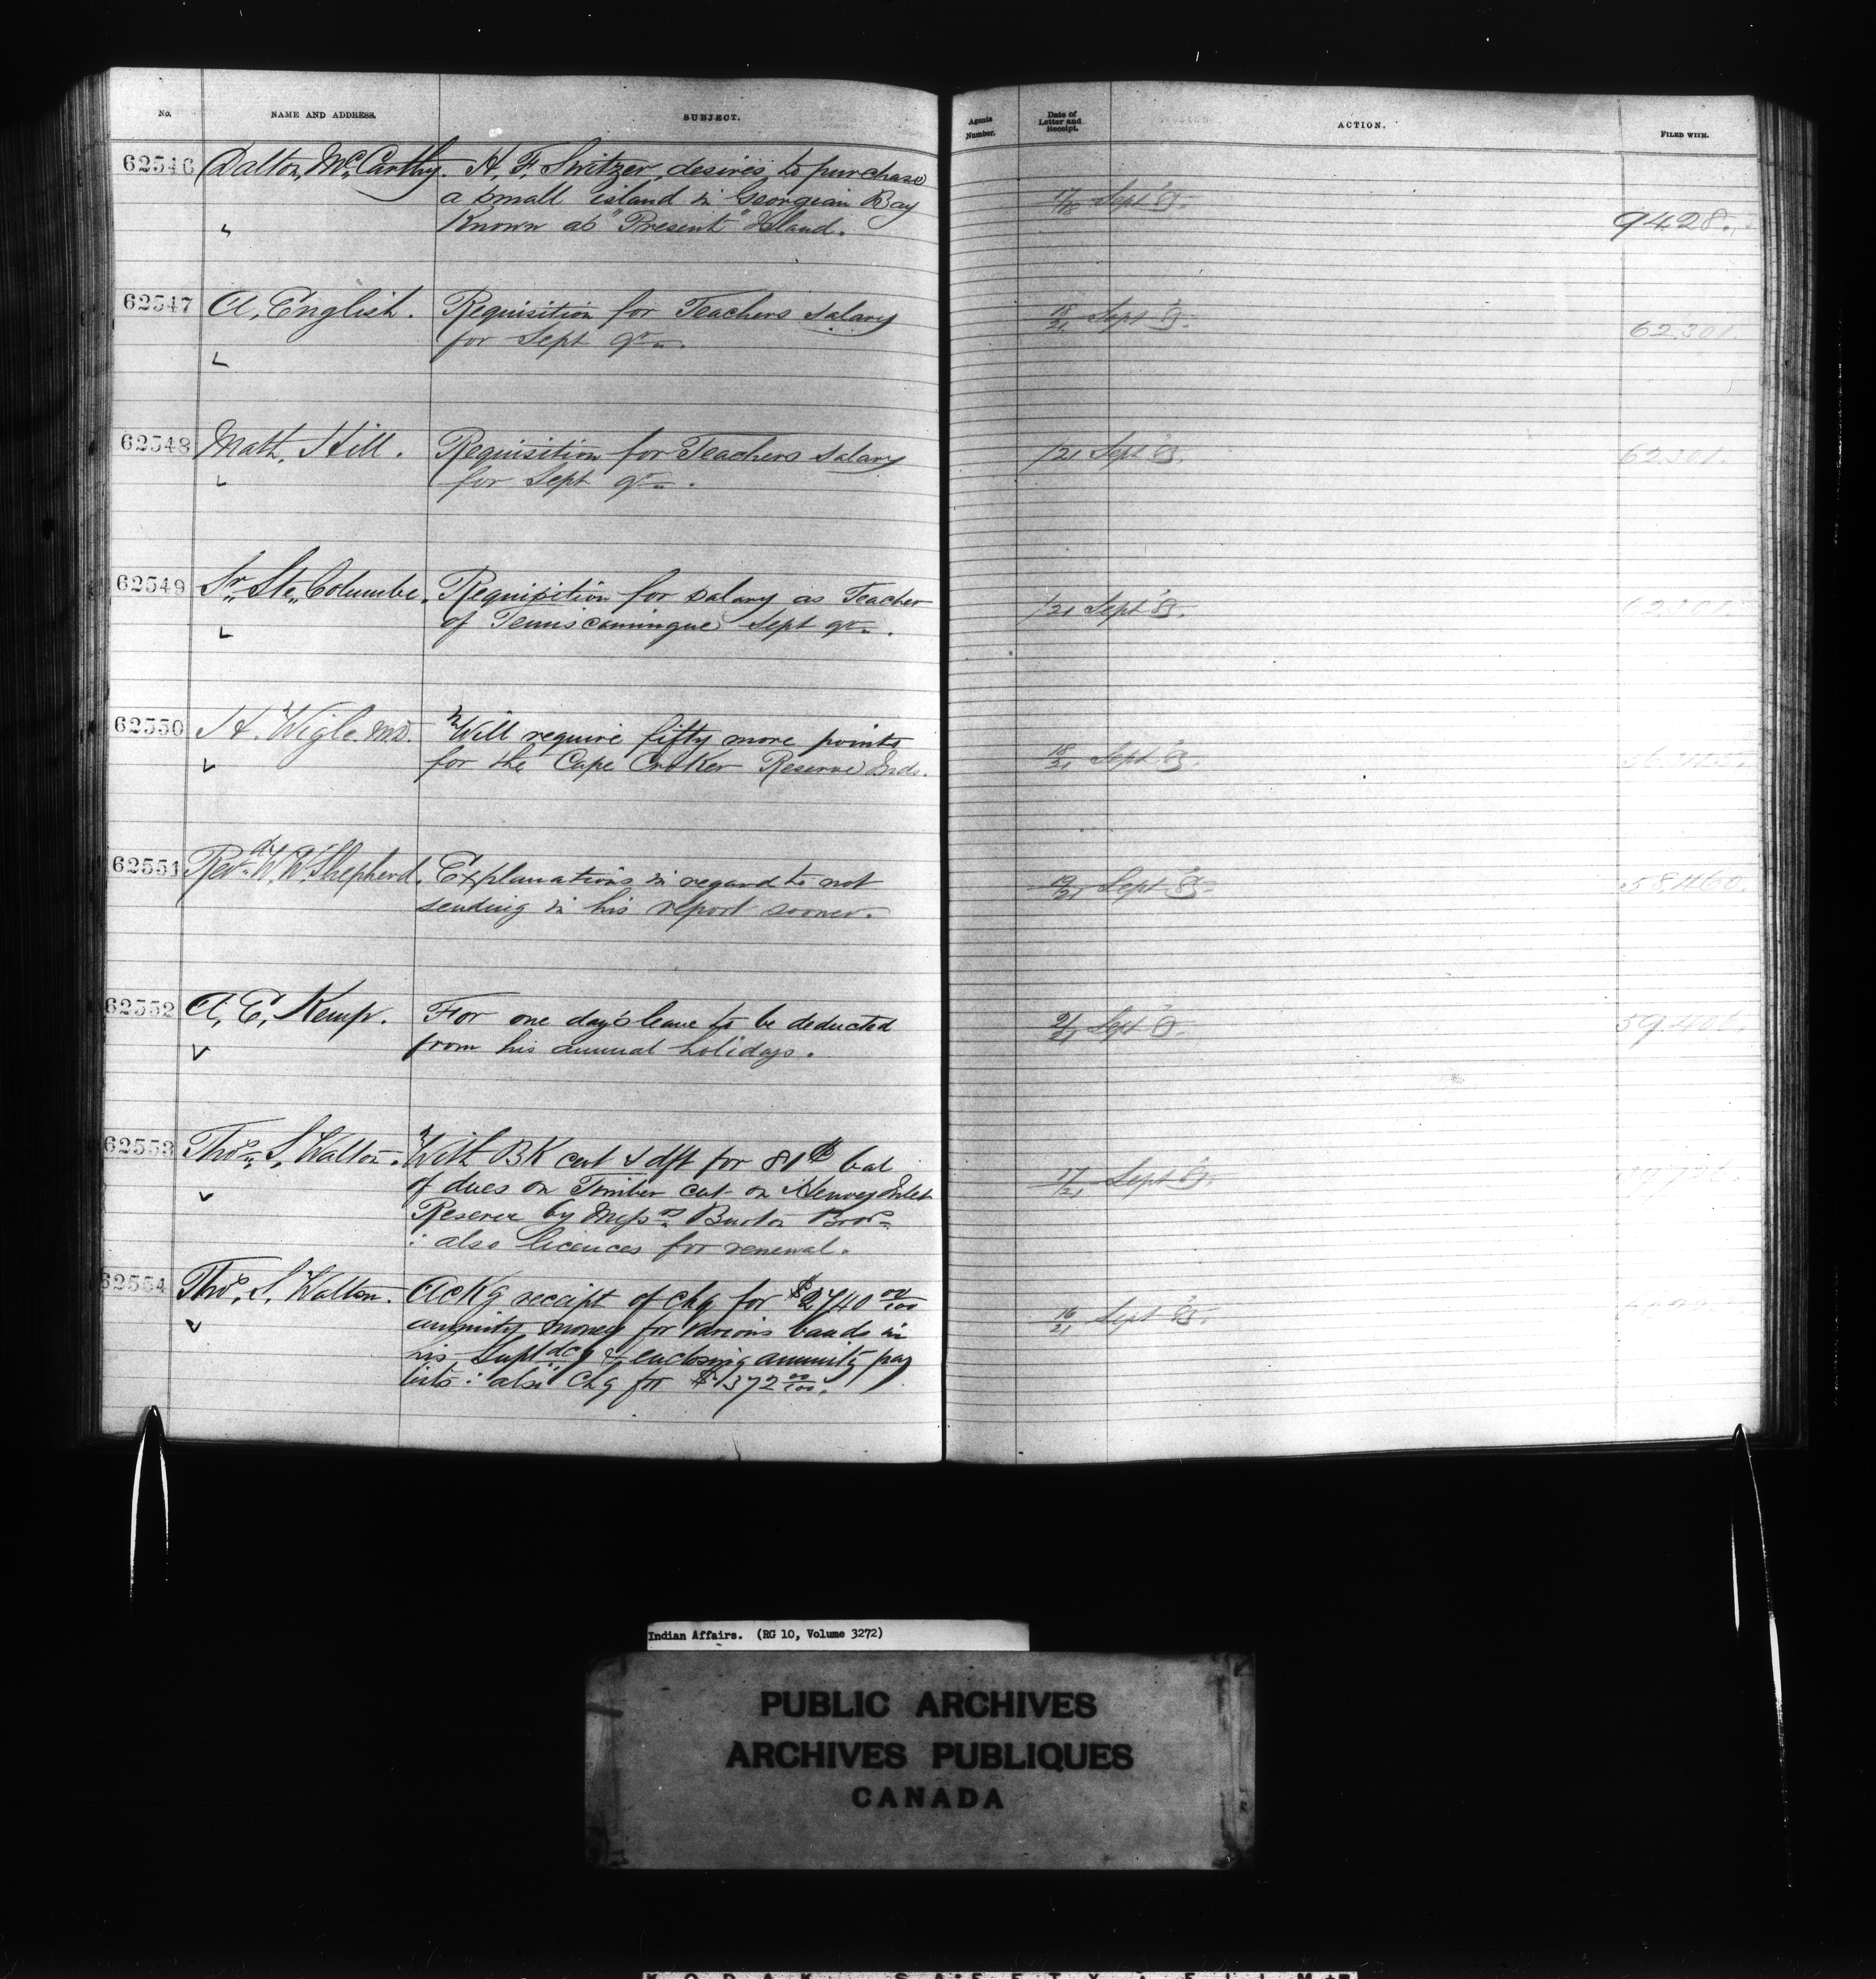 No. NAME AND ADDRESS. SUBJECT. Agents Number. Date of Letter and Receipt. ACTION. FILED WITH.
62546 Dalton, McCarthy. H. F. Switzer, desires to purchase
a small island in Georgian Bay 17/18 Sept 85.
Known as "Present" Island. 9428.
62547 A. English. Requisition for Teachers salary 18/21 Sept 85.
for Sept qr. 62.301.
62548 Math. Hill. Requisition for Teachers salary /21 Sept 85. 62301.
for Sept qr.
62549 Sr. Ste. Columbe. Requisition for salary as Teacher /21 Sept 85. 62301.
of Temiscamingue Sept qr.
62550 H. Wigle. M.D. Will require fifty more points
for the Cape Croker Reserve Inds. 18/21 Sept 85.
62551 Revd. W. W. Shepherd. Explanations in regard to not 19/21 Sept 85. 58460.
sending in his report sooner.
62552 A. E. Kemp. For one day's leave to be deducted 21/21 Sept 59401.
from his annual holidays.
62553 Thos. S. Walton. With BK cert & dft for 81$ bal
of dues on Timber cut on Henvey Inlet 17/21 Sept 85.
Reserve by Messrs Burton Bros.
: also licences for renewal.
62554 Thos. S. Walton. Ackg receipt of chq for $2740 00/100
annuity money for various bands in 16/21 Sept 85.
his Suptdcy & enclosing annuity pay
lists : also Chq for $1372 00/100.
Indian Affairs. (RG 10, Volume 3272)
PUBLIC ARCHIVES
ARCHIVES PUBLIQUES
CANADA